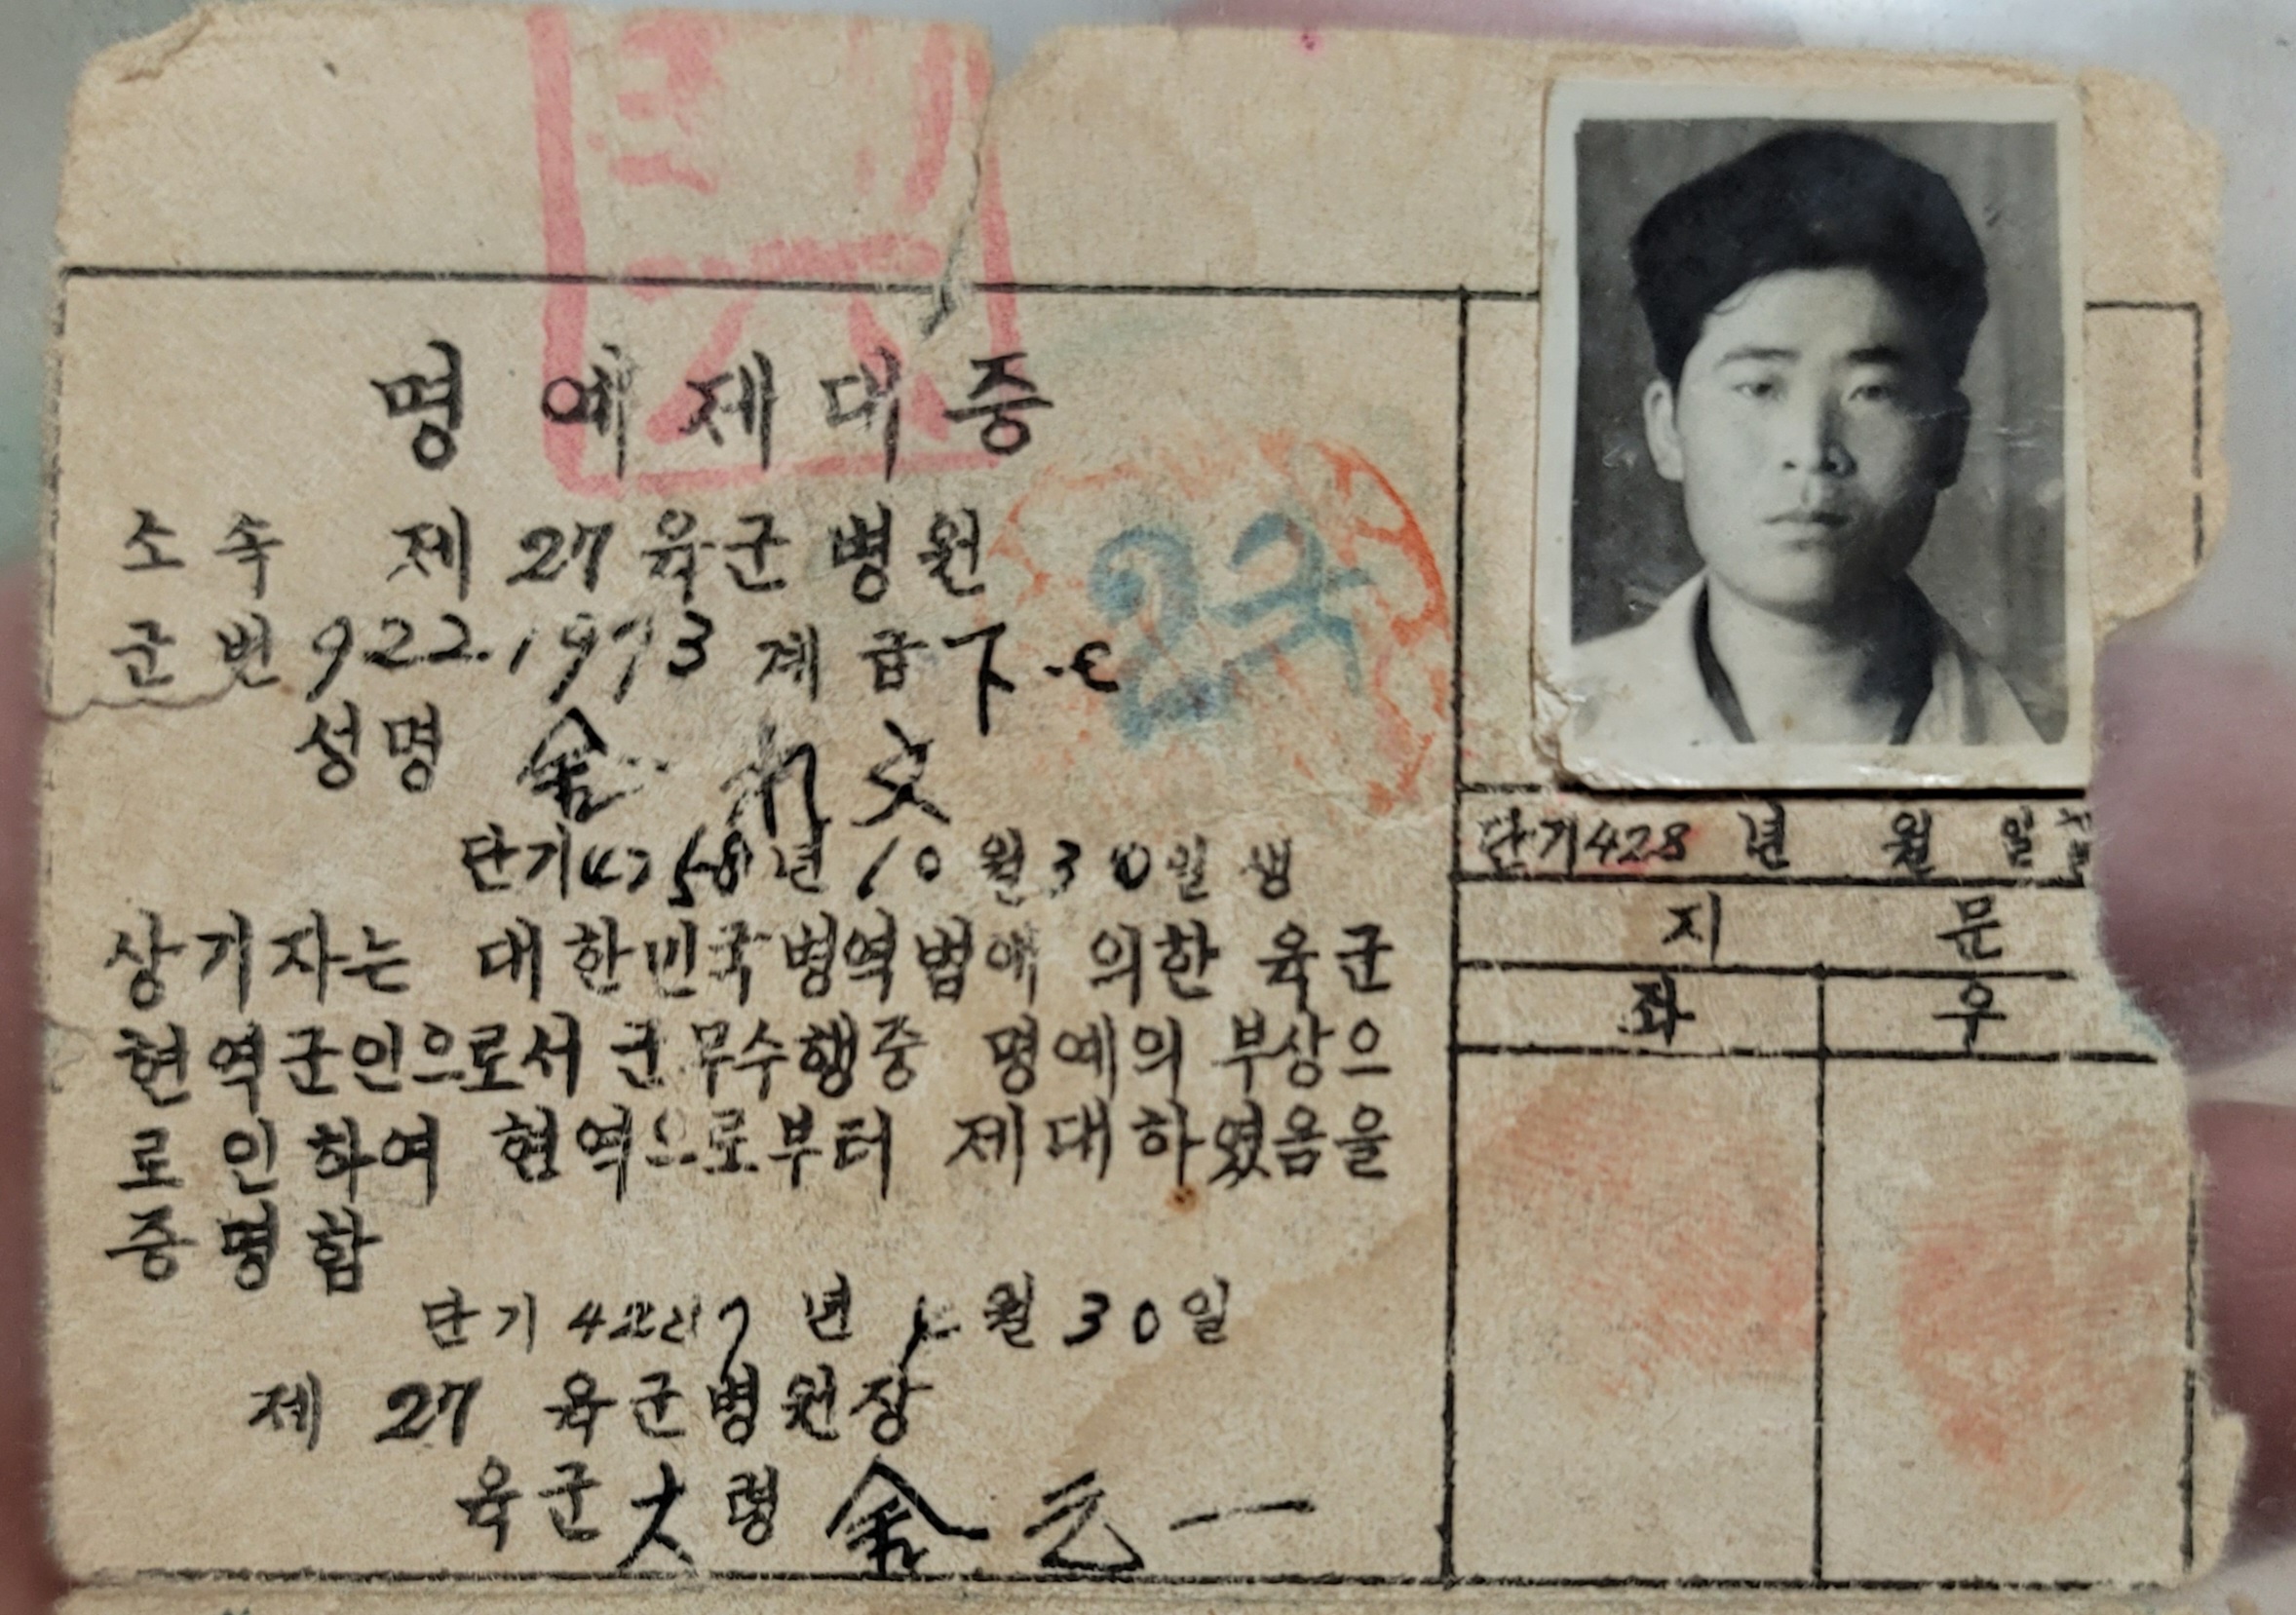 명예제대증
소속 제27육군병원
군번 922.1973 계급 下
성명 金 文
단기4258년 10월 30일생
상기자는 대한민국병역법에 의한 육군
현역군인으로서 군무수행중 명예의 부상으
로 인하여 현역으로부터 제대하였음을
증명함
단기 4287년 월 30일
제27육군병원장
육군大령 金 一
단기428 년 월 일
지 문
좌 우